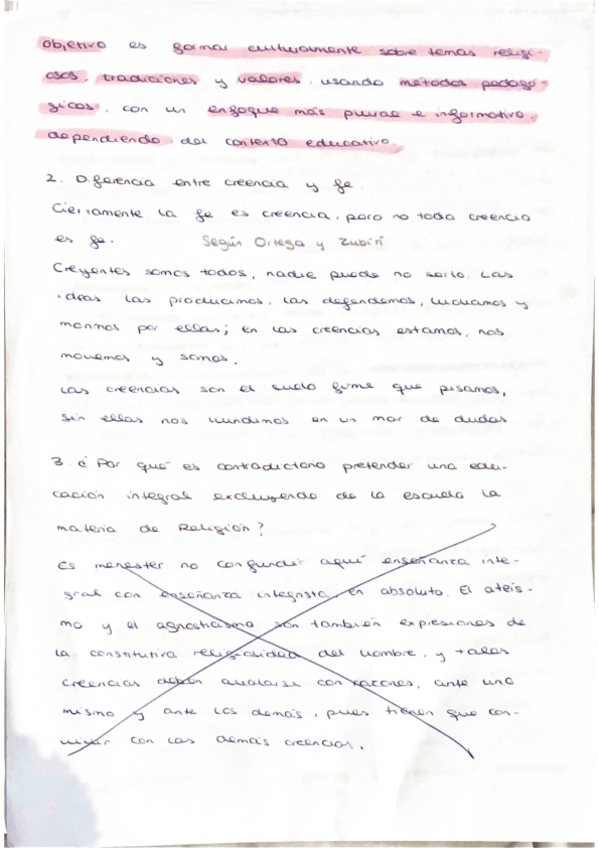 objetivo es formar culturalmente sobre temas religi-
osos, tradiciones y valores, usando metodos pedagó-
gicos, con un enfoque más plural e informativo,
dependiendo del contexto educativo.
2. Diferencia entre creencia y fe.
Ciertamente la fe es creencia, pero no toda creencia
es fe. Según Ortega y Zubiri
Creyentes somos todos, nadie puede no serlo. Las
ideas las producimos, las defendemos, luchamos y
morimos por ellas; en las creencias estamos, nos
movemos y somos.
Las creencias son el suelo firme que pisamos,
sin ellas nos hundimos en un mar de dudas
3. ¿Por qué es contradictorio pretender una edu-
cación integral excluyendo de la escuela la
materia de Religión?
Es menester no confundir aquí enseñanza inte-
gral con enseñanza integrista, en absoluto. El ateís-
mo y el agnosticismo son también expresiones de
la constitutiva religiosidad del hombre, y tales
creencias deben avalarse con razones, ante uno
mismo y ante los demás, pues tienen que con-
vivir con las demás creencias.